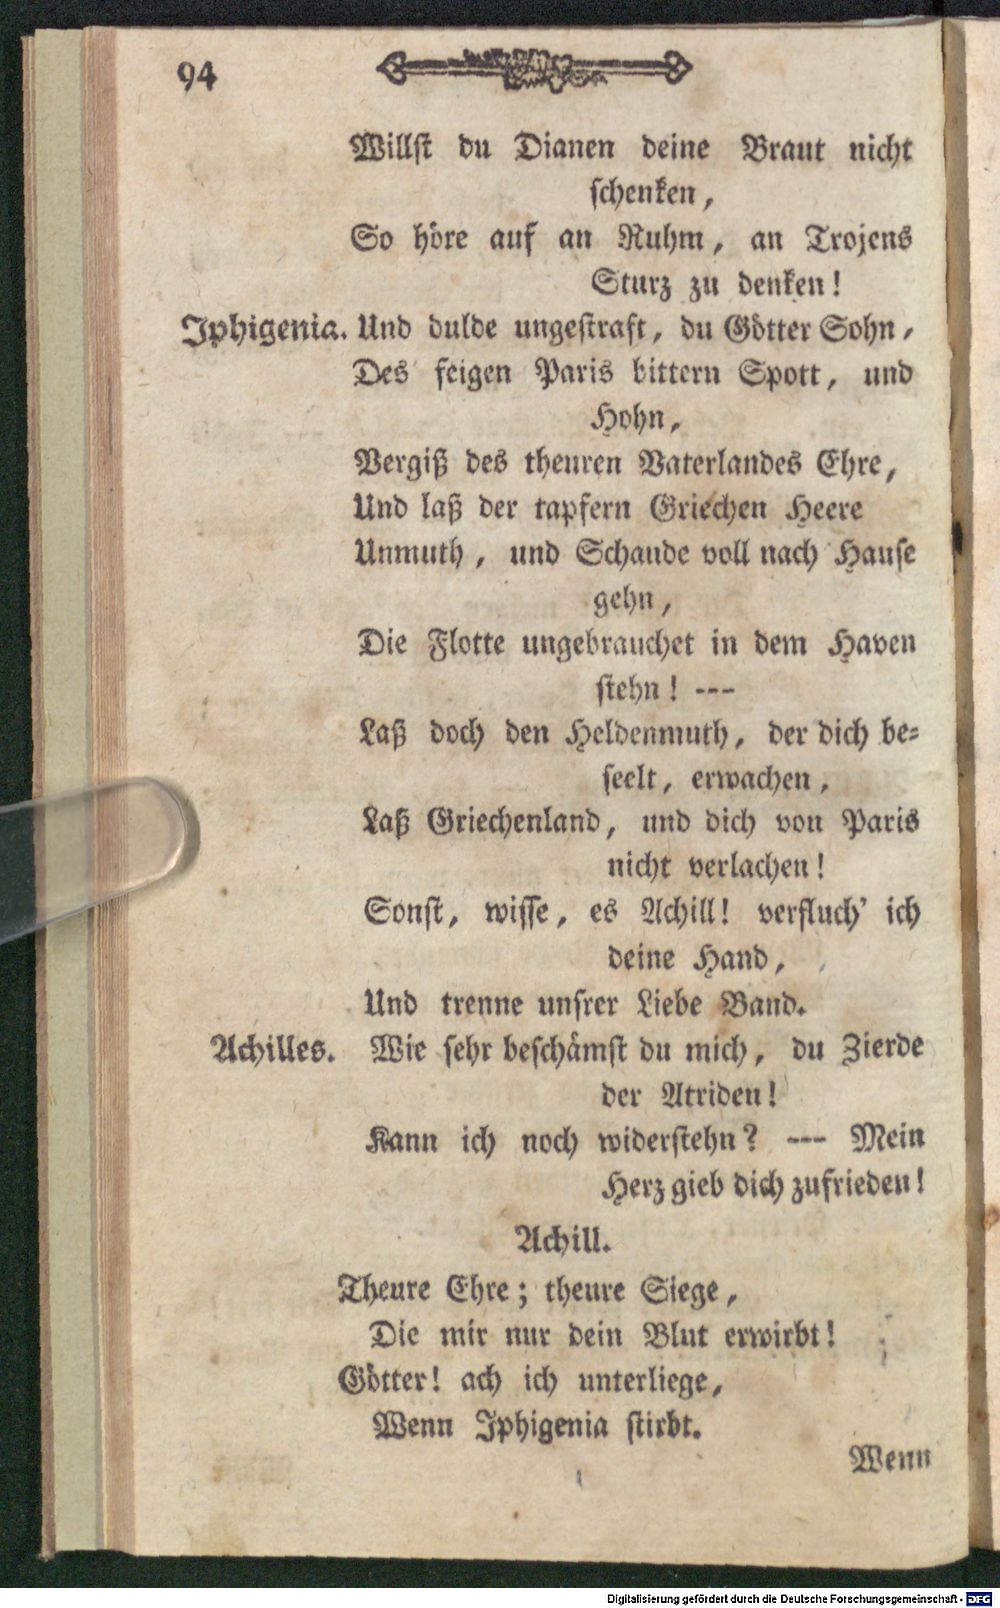 94
Willst du Dianen deine Braut nicht
schenken,
So höre auf an Ruhm, an Trojens
Sturz zu denken!
Iphigenia. Und dulde ungestraft, du Götter Sohn,
Des feigen Paris bittern Spott, und
Hohn,
Vergiß des theuren Vaterlandes Ehre,
Und laß der tapfern Griechen Heere
Unmuth, und Schande voll nach Hause
gehn,
Die Flotte ungebrauchet in dem Haven
stehn! ---
Laß doch den Heldenmuth, der dich be-
seelt, erwachen,
Laß Griechenland, und dich von Paris
nicht verlachen!
Sonst, wisse, es Achill! verfluch' ich
deine Hand,
Und trenne unsrer Liebe Band.
Achilles. Wie sehr beschämst du mich, du Zierde
der Atriden!
Kann ich noch widerstehn? --- Mein
Herz gieb dich zufrieden!
Achill.
Theure Ehre; theure Siege,
Die mir nur dein Blut erwirbt!
Götter! ach ich unterliege,
Wenn Iphigenia stirbt.
Wenn
Digitalisierung gefördert durch die Deutsche Forschungsgemeinschaft - DFG